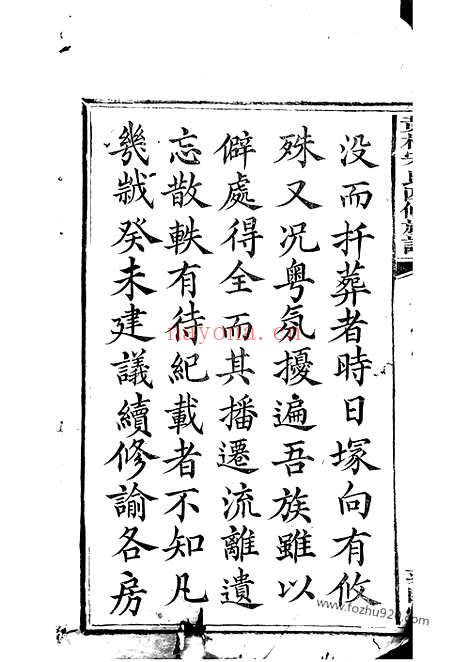 没而扦葬者時日塚向有攸
殊又况粤氛擾遍吾族雖以
僻處得全而其播遷流離遺
忘散軼有待紀載者不知凡
幾歲癸未建議續修諭各房
nayona.cn
www.fozhu920.com